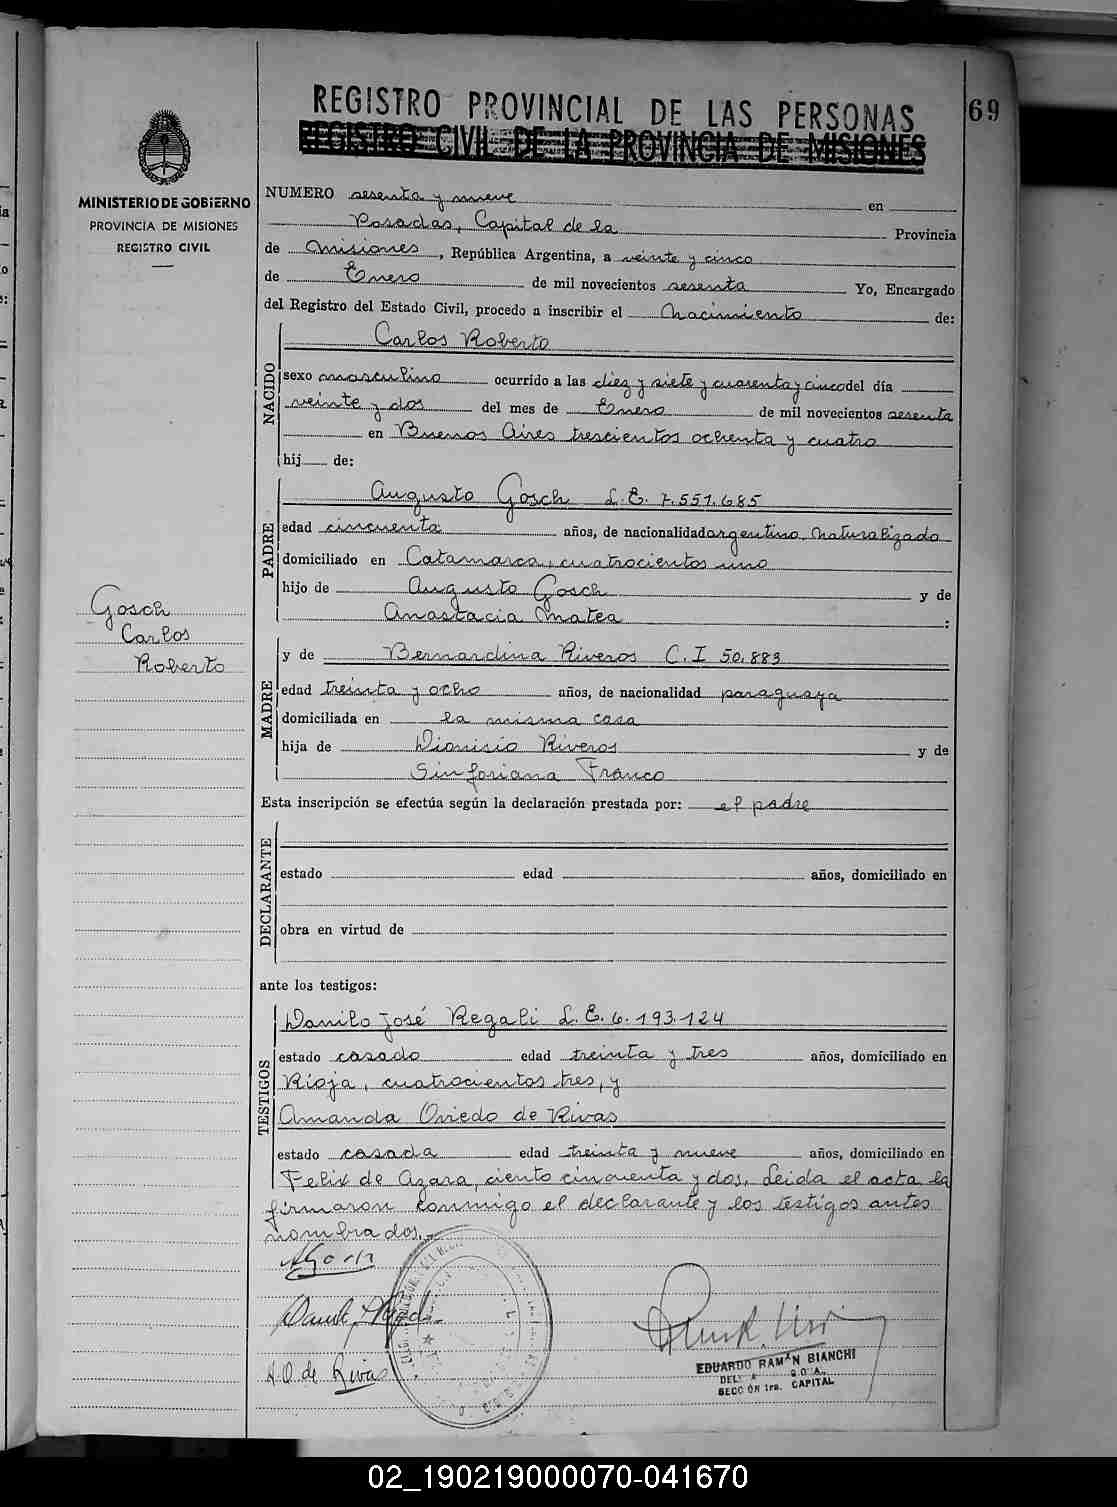 REGISTRO PROVINCIAL DE LAS PERSONAS
69
REGISTRO CIVIL DE LA PROVINCIA DE MISIONES
MINISTERIO DE GOBIERNO
PROVINCIA DE MISIONES
REGISTRO CIVIL
NUMERO sesenta y nueve en
Posadas, Capital de la Provincia
de Misiones, República Argentina, a veinte y cinco
de Enero de mil novecientos sesenta Yo, Encargado
del Registro del Estado Civil, procedo a inscribir el Nacimiento de:
NACIDO
Carlos Roberto
sexo masculino ocurrido a las diez y siete y cuarenta y cinco del día
veinte y dos del mes de Enero de mil novecientos sesenta
en Buenos Aires trescientos ochenta y cuatro
hij de:
PADRE
Augusto Gosch L.E. 7.551.685
edad cincuenta años, de nacionalidad argentino, naturalizado
domiciliado en Catamarca, cuatrocientos uno
hijo de Augusto Gosch y de
Anastacia Matea :
Gosch
Carlos
Roberto
MADRE
y de Bernardina Riveros C.I 50.883
edad treinta y ocho años, de nacionalidad paraguaya
domiciliada en la misma casa
hija de Dionisio Riveros y de
Sinforiana Franco
Esta inscripción se efectúa según la declaración prestada por: el padre
DECLARANTE
estado edad años, domiciliado en
obra en virtud de
ante los testigos:
TESTIGOS
Danilo José Regali L.E. 6.193.124
estado casado edad treinta y tres años, domiciliado en
Rioja, cuatrocientos tres, y
Amanda Oviedo de Rivas
estado casada edad treinta y nueve años, domiciliado en
Felix de Azara, ciento cincuenta y dos. Leida el acta la
firmaron conmigo el declarante y los testigos antes
nombrados.-
A.O. de Rivas
EDUARDO RAMÓN BIANCHI
SECCIÓN 1ra. CAPITAL
02_190219000070-041670